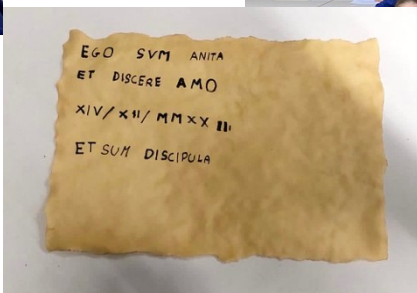 EGO SVM ANITA
ET DISCERE AMO
XIV/XII/MMXXIII
ET SUM DISCIPULA